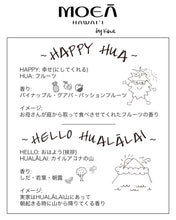 MOEĀ
HAWAI'I
~HAPPY HUA~
HAPPY: 幸せ(にしてくれる)
HUA: フルーツ
香り:
パイナップル・グアバ・パッションフルーツ
イメージ:
お母さんが庭から取って食べさせてくれたフルーツの香り
~HELLO HUALĀLAI~
HELLO: おはよう(挨拶)
HUALĀLAI: カイルアコナの山
香り:
しだ・若葉・朝露
イメージ:
実家はHUALĀLAI山にあって
朝起きる時に山から降りてくる香り